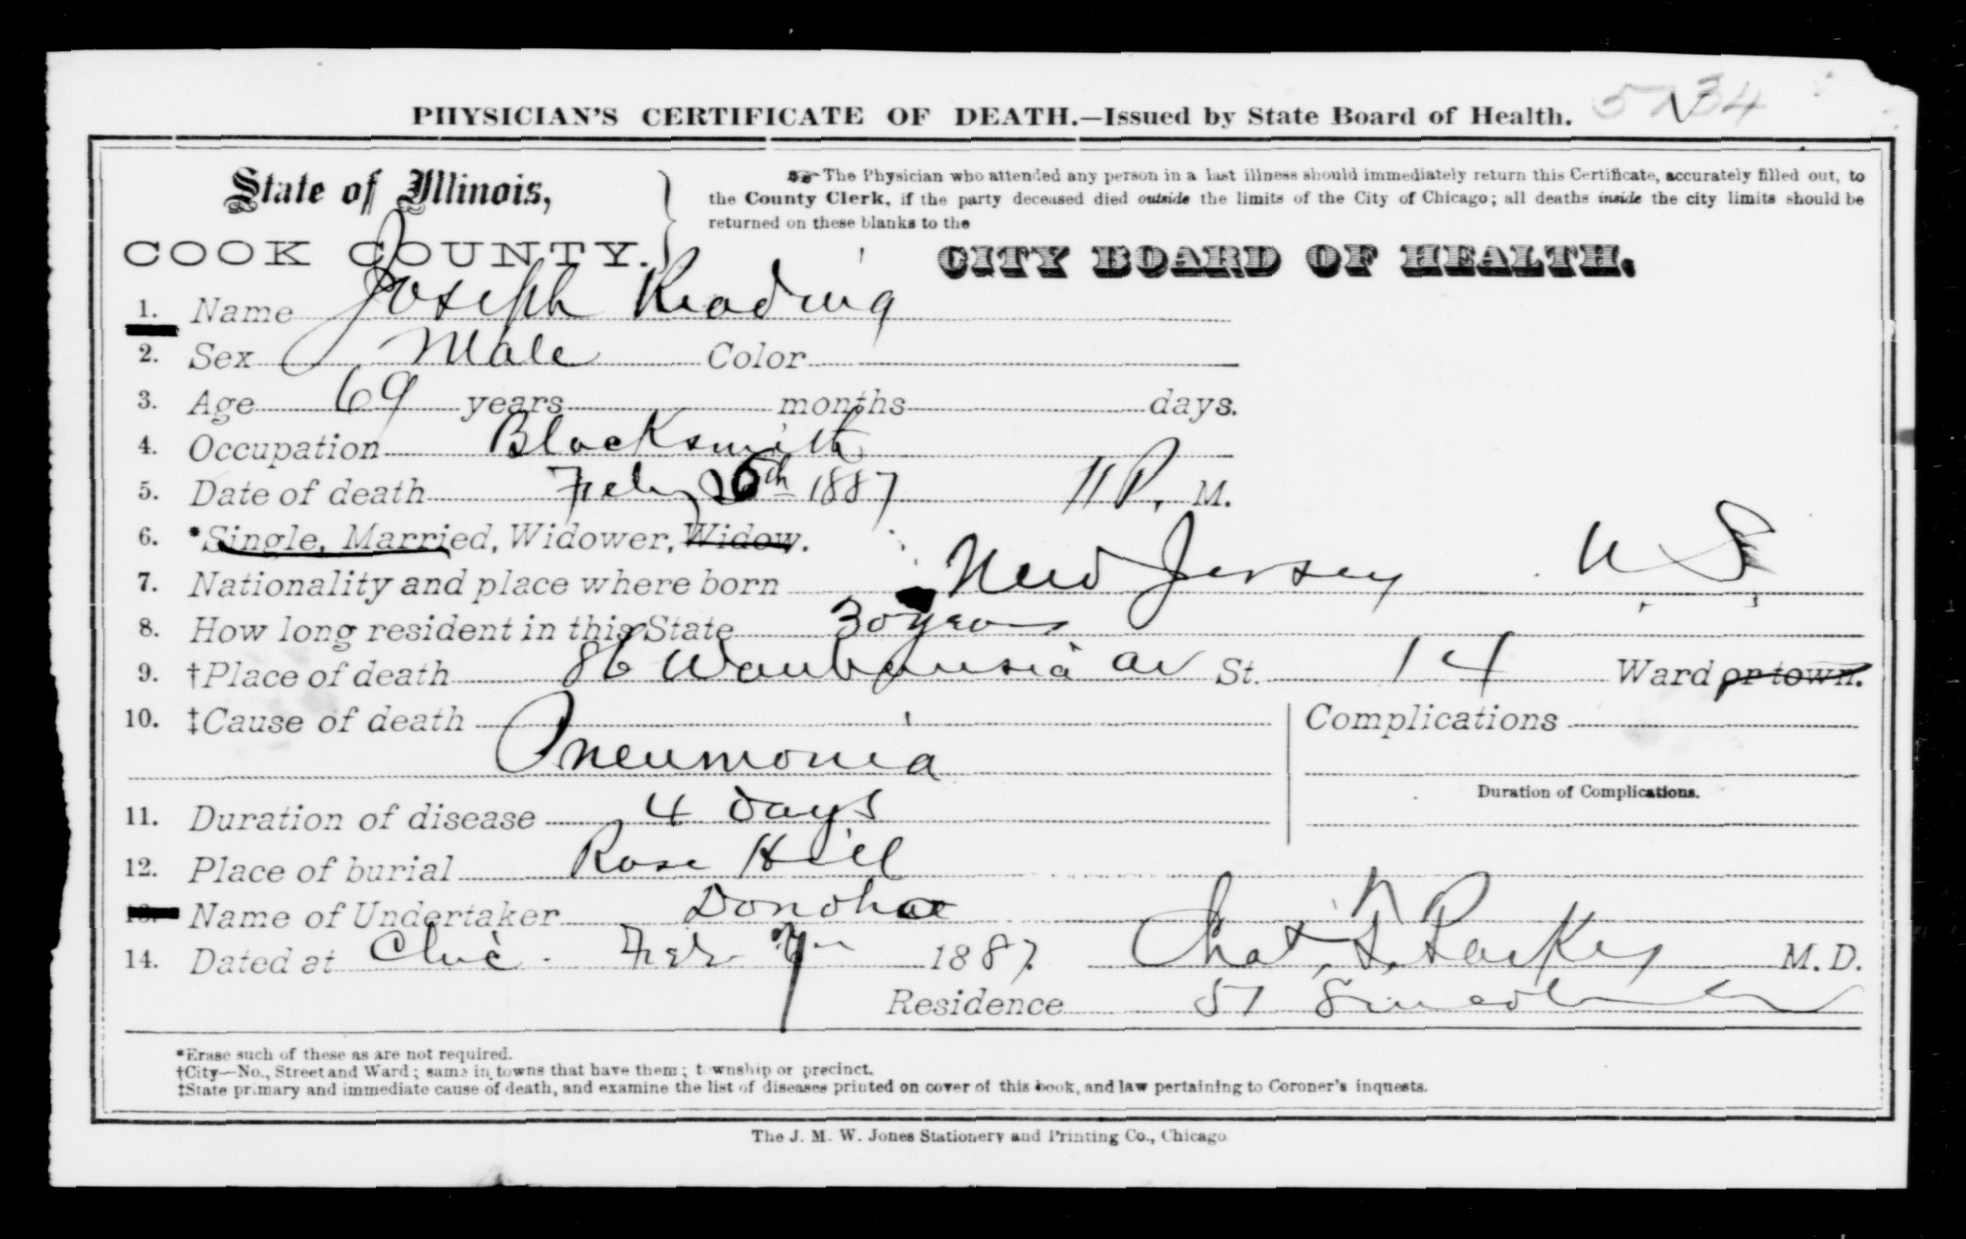 PHYSICIAN'S CERTIFICATE OF DEATH.—Issued by State Board of Health.
State of Illinois,
COOK COUNTY.
The Physician who attended any person in a last illness should immediately return this Certificate, accurately filled out, to
the County Clerk, if the party deceased died outside the limits of the City of Chicago; all deaths inside the city limits should be
returned on these blanks to the
CITY BOARD OF HEALTH.
1. Name Joseph Reading
2. Sex Male Color
3. Age 69 years months days.
4. Occupation Blacksmith
5. Date of death Feby 1887 11 P. M.
6. *Single, Married, Widower, Widow.
7. Nationality and place where born New Jersey U S
8. How long resident in this State 30 years
9. †Place of death 86 Waubansia av St. 14 Ward or town.
10. ‡Cause of death Complications
Pneumonia
Duration of Complications.
11. Duration of disease 4 days
12. Place of burial Rose Hill
13. Name of Undertaker Donohoe
14. Dated at Chic. Feb 1887. Chas. M. D.
Residence 51
*Erase such of these as are not required.
†City—No., Street and Ward; same in towns that have them; township or precinct.
‡State primary and immediate cause of death, and examine the list of diseases printed on cover of this book, and law pertaining to Coroner's inquests.
The J. M. W. Jones Stationery and Printing Co., Chicago